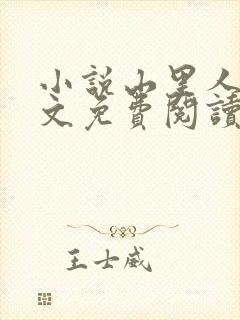 小說小黑人
文免費閱讀
王士威